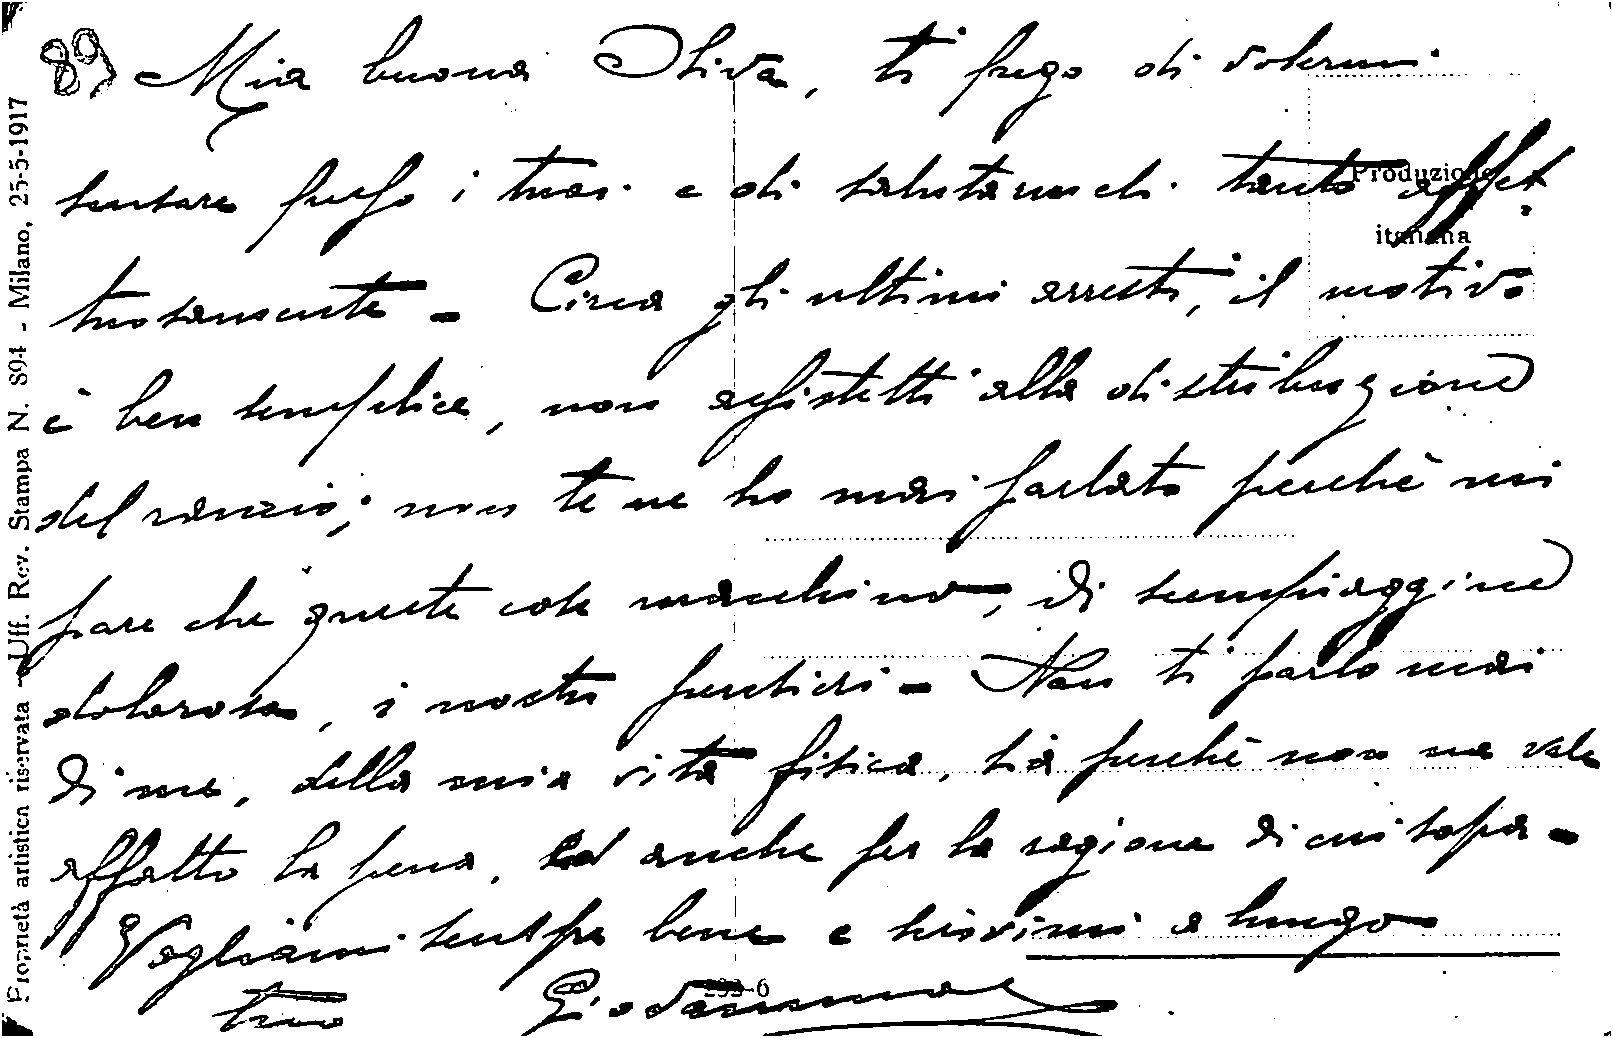 89 Mia buona Oliva, ti prego di volermi
scusare presso i tuoi e di salutarmeli tanto affet
tuosamente - Circa gli ultimi arresti, il motivo
è ben semplice, non assistetti alla distribuzione
del rancio; non te ne ho mai parlato perchè mi
pare che queste cose macchino, di scempiaggine
dolorosa, i nostri pensieri - Non ti parlo mai
di me, della mia vita fisica, sia perchè non ne vale
affatto la pena, ed anche per la ragione di cui sopra -
Vogliami sempre bene e scrivimi a lungo
tuo Giovanni
Produzione
italiana
Proprietà artistica riservata - Uff. Rev. Stampa N. 894 - Milano, 25-5-1917